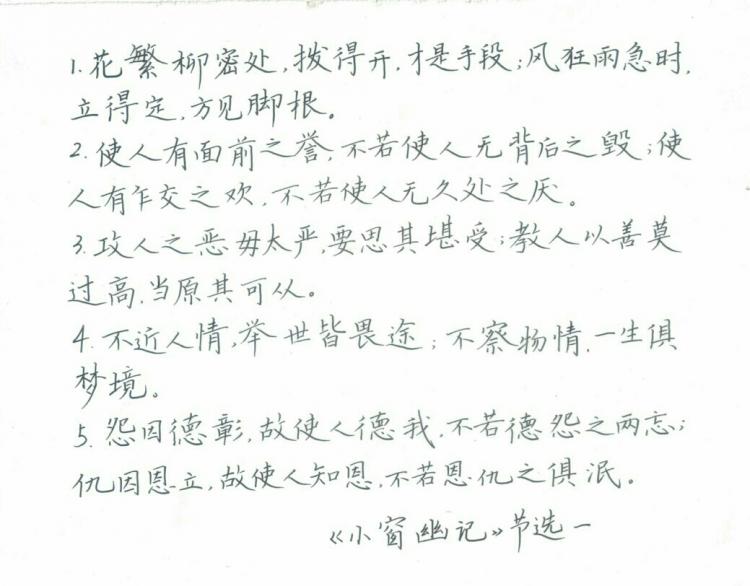 1.花繁柳密处,拨得开,才是手段;风狂雨急时,
立得定,方见脚根。
2.使人有面前之誉,不若使人无背后之毁;使
人有乍交之欢,不若使人无久处之厌。
3.攻人之恶毋太严,要思其堪受;教人以善莫
过高,当原其可从。
4.不近人情,举世皆畏途;不察物情,一生俱
梦境。
5.怨因德彰,故使人德我,不若德怨之两忘;
仇因恩立,故使人知恩,不若恩仇之俱泯。
《小窗幽记》节选一